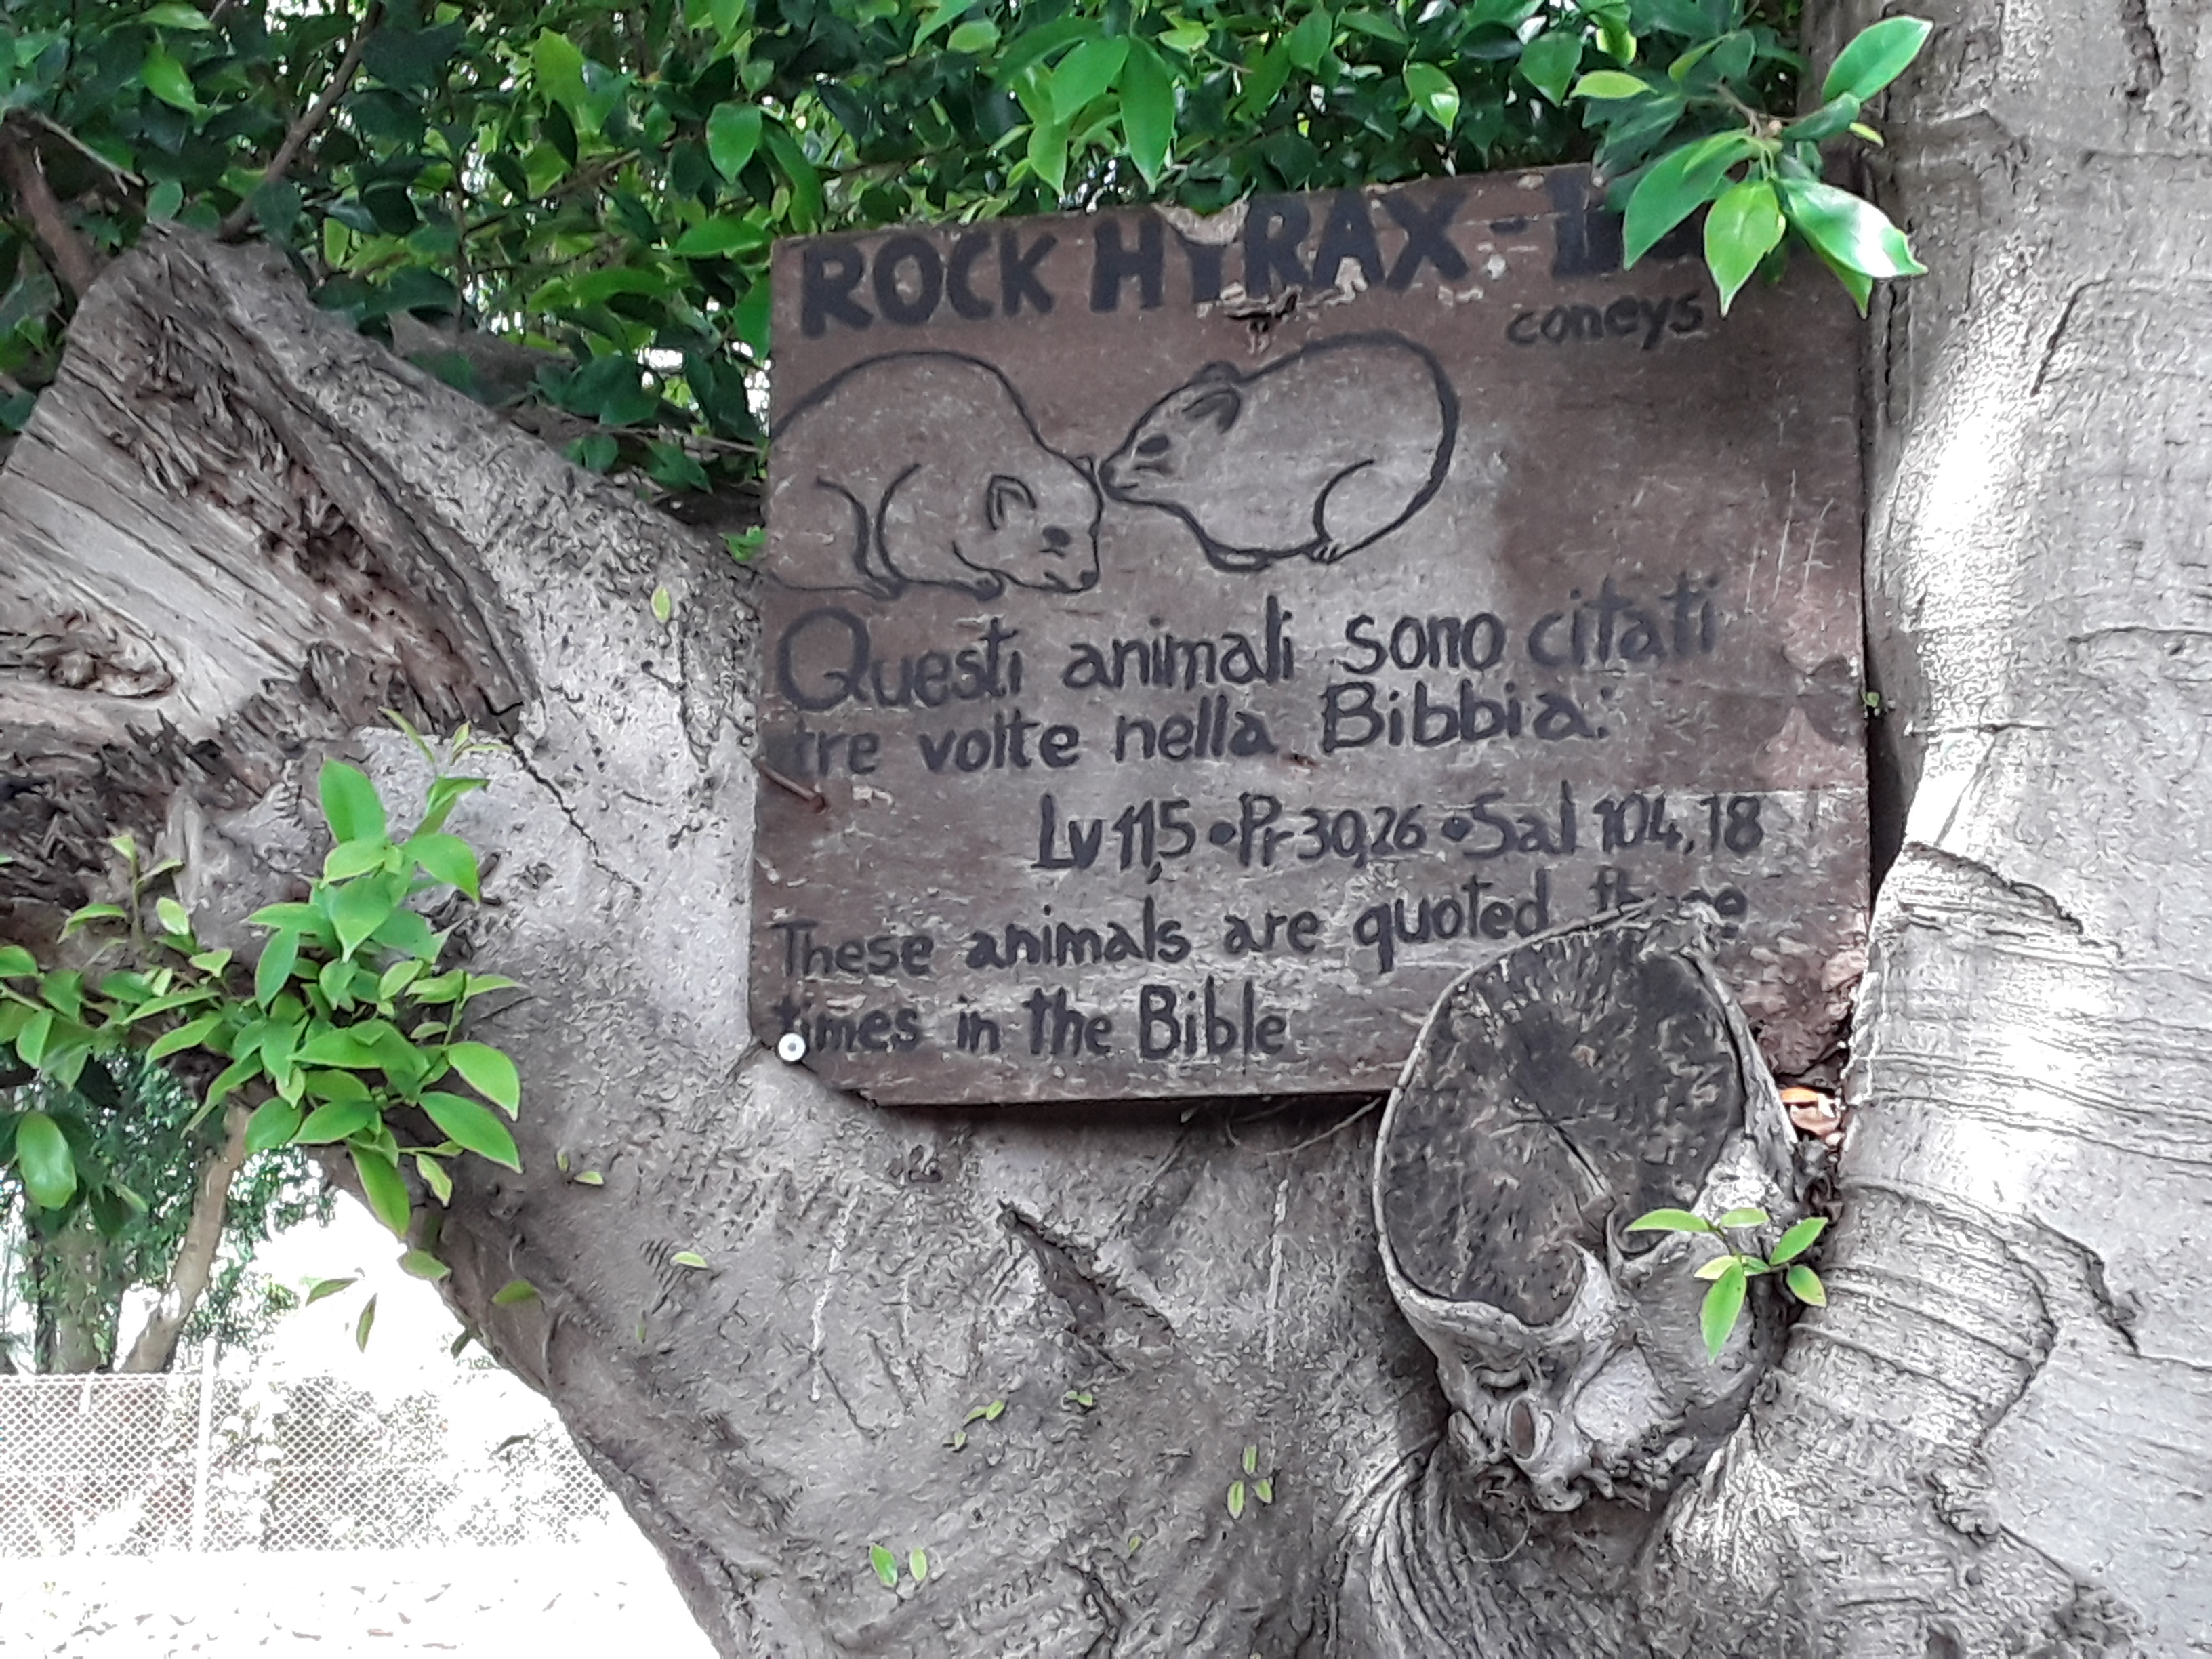 ROCK HYRAX -
coneys
Questi animali sono citati
tre volte nella Bibbia:
Lv 11,5 • Pr 30,26 • Sal 104,18
These animals are quoted three
times in the Bible